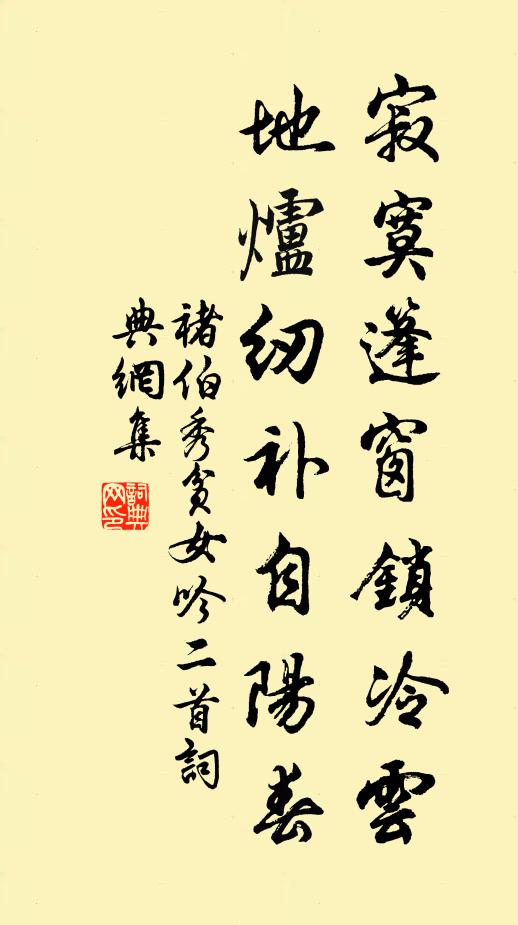 寂寞蓬窗鎖冷雲
地爐紉补自陽春
褚伯秀貧女吟二首詞
典網集
詞典网印